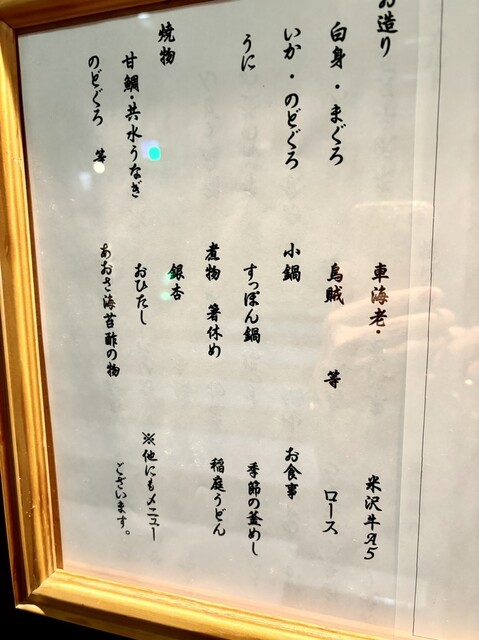 お造り
白身・まぐろ
いか・のどぐろ
うに
焼物
甘鯛・共水うなぎ
のどぐろ 等
車海老・
烏賊 等
小鍋
すっぽん鍋
煮物 箸休め
銀杏
おひたし
あおさ海苔酢の物
米沢牛A5
ロース
お食事
季節の釜めし
稲庭うどん
※他にもメニュー
ございます。